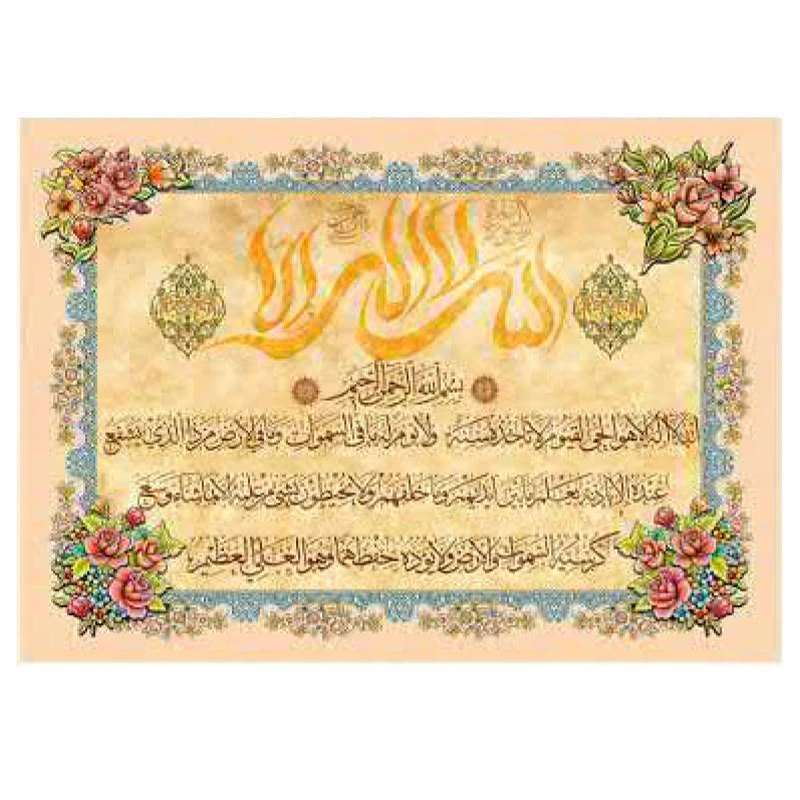 الله لا اله الا
بسم الله الرحمن الرحيم
الله لا اله الا هو الحي القيوم لا تاخذه سنة ولا نوم له ما في السموات وما في الارض من ذا الذي يشفع
عنده الا باذنه يعلم ما بين ايديهم وما خلفهم ولا يحيطون بشيء من علمه الا بما شاء وسع
كرسيه السموات والارض ولا يؤده حفظهما وهو العلي العظيم